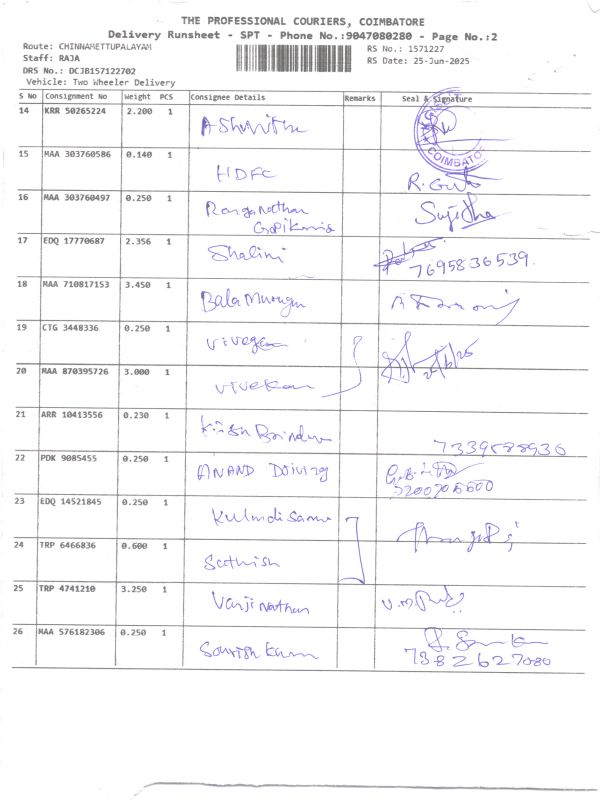 THE PROFESSIONAL COURIERS, COIMBATORE
Delivery Runsheet - SPT - Phone No.:9047080280 - Page No.:2
Route: CHINNAMETTUPALAYAM RS No.: 1571227
Staff: RAJA RS Date: 25-Jun-2025
DRS No.: DCJB157122702
Vehicle: Two Wheeler Delivery
S No Consignment No Weight PCS Consignee Details Remarks Seal & Signature
14 KRR 50265224 2.200 1 Ashwitha
COIMBATO
15 MAA 303760586 0.140 1 HDFC
16 MAA 303760497 0.250 1 Ranganathan Sujidha
17 EDQ 17770687 2.356 1 Shalini
7695836539
18 MAA 710817153 3.450 1 Bala Murugan
19 CTG 3448336 0.250 1 Vivekan
20 MAA 870395726 3.000 1 Vivekan
21 ARR 10413556 0.230 1
22 PDK 9085455 0.250 1 ANAND
23 EDQ 14521845 0.250 1
24 TRP 6466836 0.600 1 Sathish
25 TRP 4741210 3.250 1 Vanjinathan
26 MAA 576182306 0.250 1
7382627080